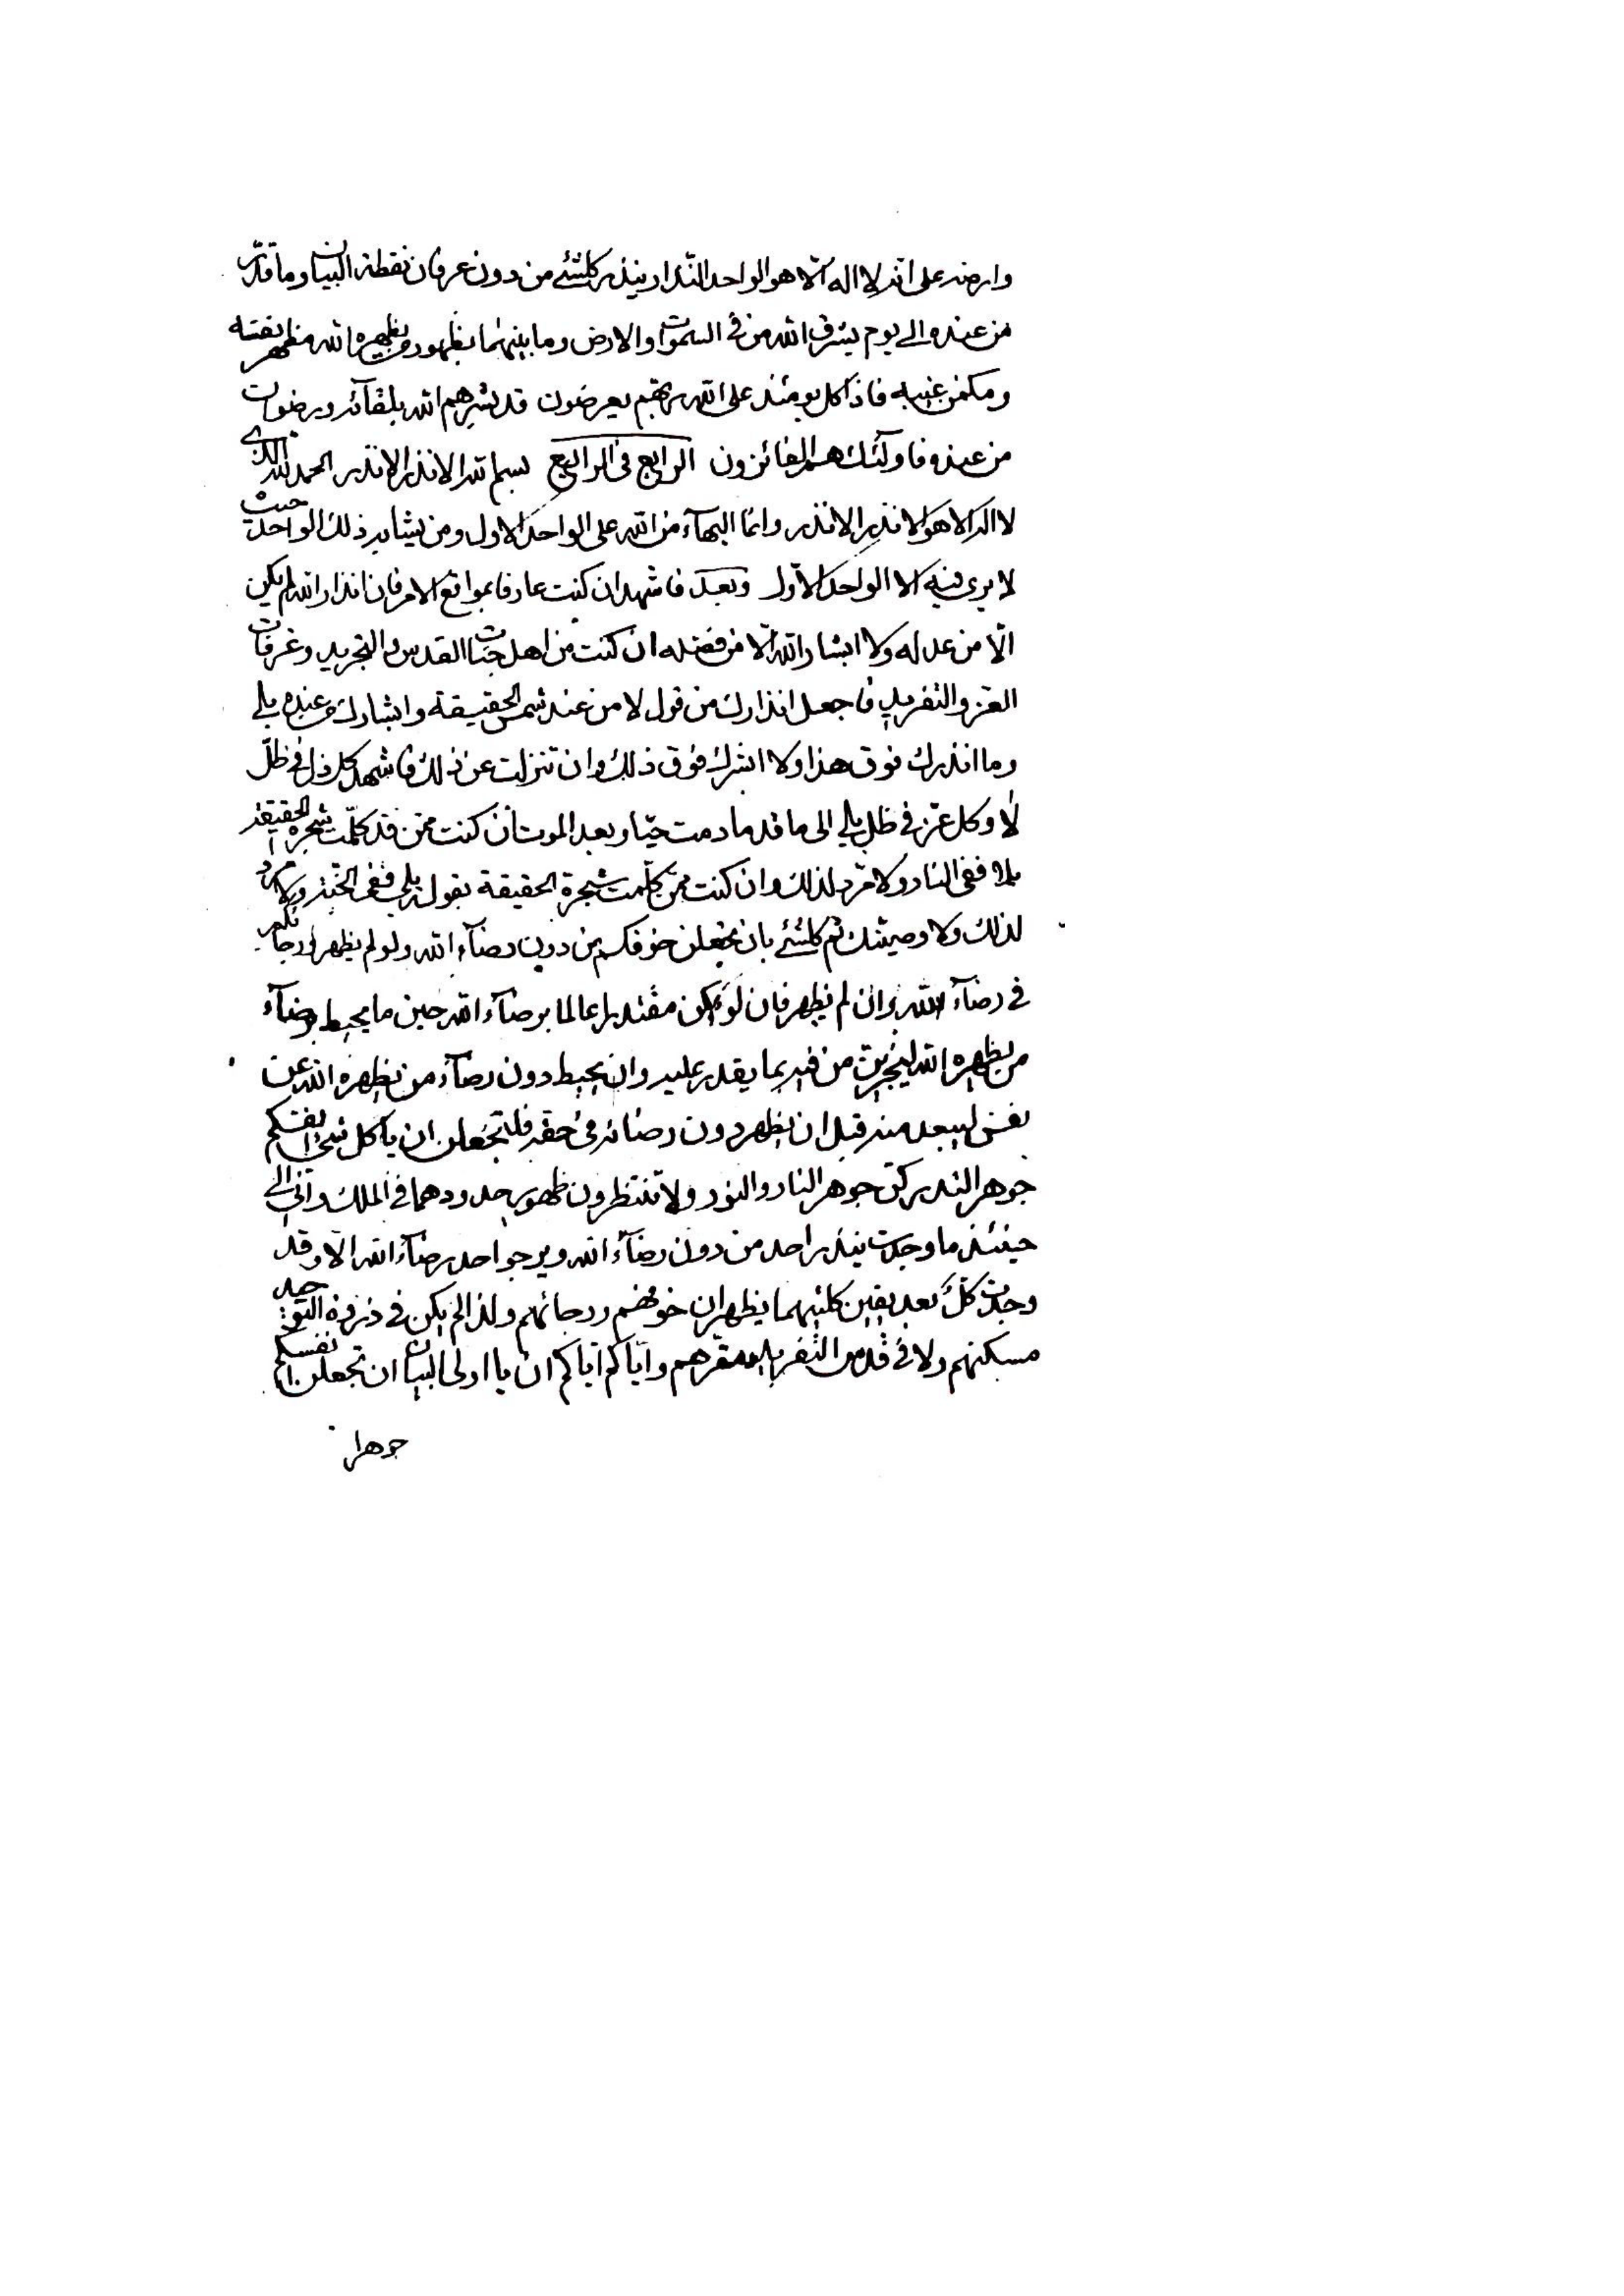 وارضه على انه لا اله الا هو الواحد النذار ينذر كلشئ من دون عرفان نقطة البيان وما قدر
من عنده الى يوم يشرق الله من في السموات والارض وما بينهما بظهور من يظهره الله مظهر نفسه
ومكمن غيبه فاذا كل يومئذ على الله ربهم يعرضون قد بشرهم الله بلقائه ورضوان
من عنده فاولئك هم الفائزون الرابع في الرابع بسم الله الانذر الانذر الحمد لله الذى
لا اله الا هو الانذر الانذر وانما البهاء من الله على الواحد الاول ومن يشابه ذلك الواحد حيث
لا يرى فيه الا الواحد الاول وبعد فاشهد ان كنت عارفا بمواقع الامر فان انذار الله لم يكن
الا من عدله ولا ابشار الله الا من فضله ان كنت من اهل جنات القدس والتجريد وغرفات
العز والتفريد فاجعل انذارك من قول لا من عند شمس الحقيقة وابشارك من عنده بلى
وما انذرك فوق هذا ولا ابشرك فوق ذلك وان تنزلت عن ذلك فاشهد كل ذل في ظل
لا وكل عز في ظل بلى الى ما قد ما دمت حيا وبعد الموت ان كنت ممن قد كلمت شجرة الحقيقة
بلا ففي النار ولا مرد لذلك وان كنت ممن كلمت شجرة الحقيقة بقول بلى ففي الجنة ولا مرد
لذلك ولاوصيتك ثم كلشئ بان تجعلن خوفكم من دون رضاء الله ولو لم يظهر ورجائكم
في رضاء الله وان لم يظهر فان لو يكن مقتدرا عالما برضاء الله حين ما يحيط برضاء
من يظهره الله ليجزين من فيه بما يقدر عليه وان يحيط دون رضاء من يظهره الله عن
نفس ليبعد منه قبل ان يظهر دون رضائه في حقه فلتجعلن ان يا كل شئ انفسكم
جوهرا لتدركن جوهر النار والنور ولا تنتظرون ظهور حدودهما في الملك وانى الى
حينئذ ما وجدت ينذر احد من دون رضاء الله ويرجو احد رضاء الله الا وقد
وجدت كل بعد يقين كلتيهما يظهران خوفهم ورجائهم ولذا لم يكن في ذروة التوحيد
مسكنهم ولا في قدس التفريد مقرهم واياكم اياكم ان يا اولى البيان ان تجعلن انفسكم
جوهرا